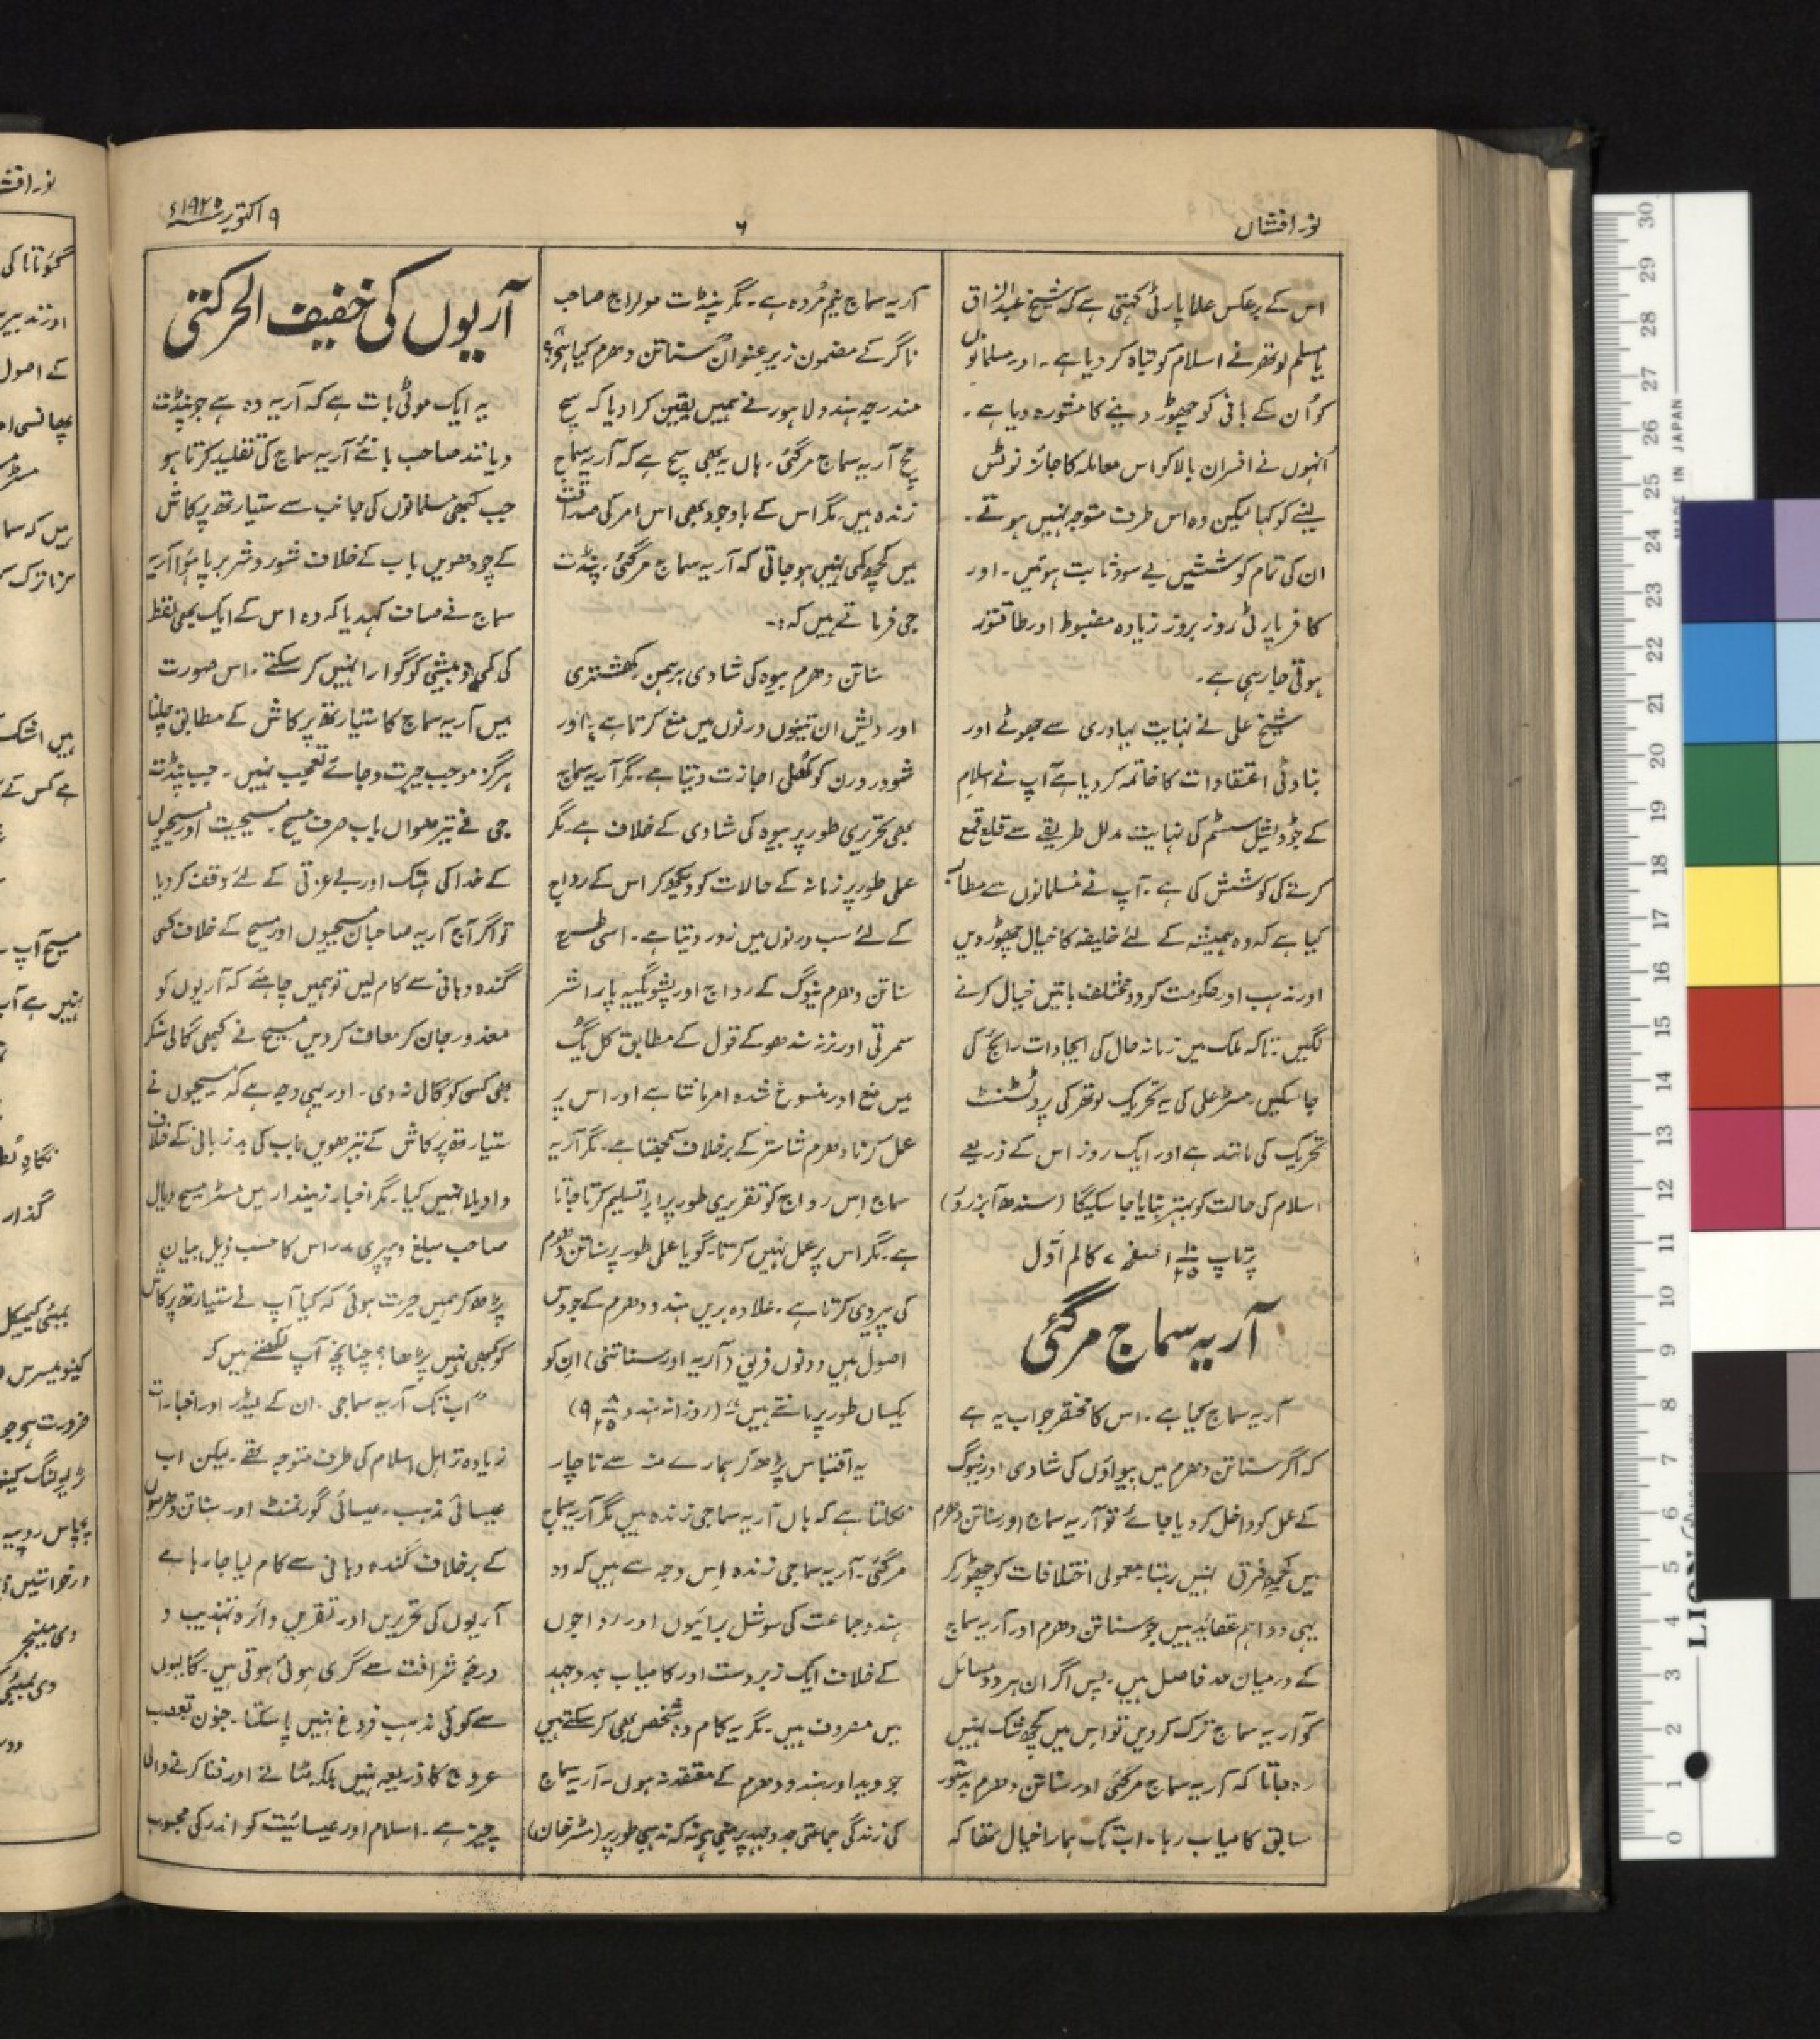 نور افشاں
۶
۹ اکتوبر سنہ ۱۹۲۵ء
اس کے برعکس علما پارٹی کہتی ہے کہ شیخ عبدالرزاق
یا مسلم لوتھر نے اسلام کو تباہ کر دیا ہے۔ اور مسلمانوں
کو اُن کے بانی کو چھوڑ دینے کا مشورہ دیا ہے۔
اُنہوں نے افسران بالا کو اس معاملہ کا جائز نوٹس
لینے کو کہا لیکن وہ اس طرف متوجہ نہیں ہوتے۔
ان کی تمام کوششیں بے سود ثابت ہوئیں۔ اور
کافر پارٹی روز بروز زیادہ مضبوط اور طاقتور
ہوتی جا رہی ہے۔
شیخ علی نے نہایت بہادری سے جھوٹے اور
بناوٹی اعتقادات کا خاتمہ کر دیا ہے آپ نے اسلام
کے جوڈیشل سسٹم کی نہایت مدلل طریقے سے قلع قمع
کرنے کی کوشش کی ہے۔ آپ نے مسلمانوں سے مطالبہ
کیا ہے کہ وہ ہمیشہ کے لئے خلیفہ کا خیال چھوڑ دیں
اور مذہب اور حکومت کو دو مختلف باتیں خیال کرنے
لگیں۔ تاکہ ملک میں زمانہ حال کی ایجادات رائج کی
جا سکیں۔ مسٹر علی کی یہ تحریک لوتھر کی پروٹسٹنٹ
تحریک کی مانند ہے اور ایک روز اس کے ذریعے
اسلام کی حالت کو بہتر بنایا جا سکیگا (سندھ آبزرور)
پرتاپ صفحہ ۷ کالم اوّل
آریہ سماج مر گئی
آریہ سماج کیا ہے۔ اس کا مختصر جواب یہ ہے
کہ اگر سناتن دھرم میں بیواؤں کی شادی اور نیوگ
کے عمل کو داخل کر دیا جائے تو آریہ سماج اور سناتن دھرم
میں کچھ فرق نہیں رہتا۔ معمولی اختلافات کو چھوڑ کر
یہی دو اہم عقائد ہیں جو سناتن دھرم اور آریہ سماج
کے درمیان حد فاصل ہیں۔ پس اگر ان ہر دو مسائل
کو آریہ سماج ترک کر دیں تو اس میں کچھ شک نہیں
رہ جاتا کہ آریہ سماج مر گئی اور سناتن دھرم بدستور
سابق کامیاب رہا۔ اب تک ہمارا خیال تھا کہ
آریہ سماج نیم مُردہ ہے۔ مگر پنڈت مولراج صاحب
ناگر کے مضمون زیر عنوان "سناتن دھرم کیا ہے؟"
مندرجہ ہندو لاہور نے ہمیں یقین کرا دیا کہ سچ
مچ آریہ سماج مر گئی۔ ہاں یہ بھی سچ ہے کہ آریہ سماج
زندہ ہیں مگر اس کے باوجود بھی اس امر کی صداقت
میں کچھ کمی نہیں ہو جاتی کہ آریہ سماج مر گئی۔ پنڈت
جی فرماتے ہیں کہ:۔
سناتن دھرم بیوہ کی شادی برہمن کھشتری
اور ویش ان تینوں ورنوں میں منع کرتا ہے۔ اور
شودر ورن کو کھلی اجازت دیتا ہے۔ مگر آریہ سماج
بھی تحریری طور پر بیوہ کی شادی کے خلاف ہے۔ مگر
عملی طور پر زمانہ کے حالات کو دیکھ کر اس کے رواج
کے لئے سب ورنوں میں زور دیتا ہے۔ اسی طرح
سناتن دھرم نیوگ کے رواج اور پشو یگیہ پاراشر
سمرتی اور نرنہ سندھو کے قول کے مطابق کل یگ
میں منع اور منسوخ شدہ امر مانتا ہے اور اس پر
عمل کرنا دھرم شاستر کے برخلاف سمجھتا ہے۔ مگر آریہ
سماج اس رواج کو تقریری طور پر برابر تسلیم کرتا جاتا
ہے۔ مگر اس پر عمل نہیں کرتا۔ گویا عملی طور پر سناتن دھرم
کی پیروی کرتا ہے۔ علاوہ بریں ہندو دھرم کے جو دس
اصول ہیں دونوں فریق (آریہ اور سناتنی) ان کو
یکساں طور پر مانتے ہیں" (روزانہ ہندو
یہ اقتباس پڑھ کر ہمارے منہ سے ناچار
نکلتا ہے کہ ہاں آریہ سماجی زندہ ہیں مگر آریہ سماج
مر گئی۔ آریہ سماجی زندہ اس وجہ سے ہیں کہ وہ
ہندو جماعت کی سوشل برائیوں اور رواجوں
کے خلاف ایک زبردست اور کامیاب جدوجہد
میں مصروف ہیں۔ مگر یہ کام وہ شخص بھی کر سکتے ہیں
جو وید اور ہندو دھرم کے معتقد نہ ہوں۔ آریہ سماج
کی زندگی جماعتی جدوجہد پر مبنی ہے نہ کہ مذہبی طور پر (مسٹر خان)
آریوں کی خفیف الحرکتی
یہ ایک موٹی بات ہے کہ آریہ وہ ہے جو پنڈت
دیانند صاحب بانئے آریہ سماج کی تقلید کرتا ہو
جب کبھی مسلمانوں کی جانب سے ستیارتھ پرکاش
کے چودھویں باب کے خلاف شور و شر برپا ہؤا آریہ
سماج نے صاف کہدیا کہ وہ اس کے ایک بھی لفظ
کی کمی و بیشی کو گوارا نہیں کر سکتے۔ اس صورت
میں آریہ سماج کا ستیارتھ پرکاش کے مطابق چلنا
ہرگز موجب حیرت و جائے تعجب نہیں۔ جب پنڈت
جی نے تیرھواں باب صرف مسیح۔ مسیحیت اور مسیحیوں
کے خدا کی ہتک اور بے عزتی کے لئے وقف کر دیا
تو اگر آج آریہ صاحبان مسیحیوں اور مسیح کے خلاف کسی
گندہ دہانی سے کام لیں تو ہمیں چاہئے کہ آریوں کو
معذور جان کر معاف کر دیں مسیح نے کبھی گالی سنکر
بھی کسی کو گالی نہ دی۔ اور یہی وجہ ہے کہ مسیحیوں نے
ستیارتھ پرکاش کے تیرھویں باب کی بدزبانی کے خلاف
واویلا نہیں کیا۔ مگر اخبار زمیندار میں مسٹر مسیح دیال
صاحب مبلغ ویپری مدراس کا حسب ذیل بیان
پڑھ کر ہمیں حیرت ہوئی کہ کیا آپ نے ستیارتھ پرکاش
کو کبھی نہیں پڑھا؟ چنانچہ آپ لکھتے ہیں کہ
"اب تک آریہ سماجی۔ ان کے لیڈر اور اخبارات
زیادہ تر اہل اسلام کی طرف متوجہ تھے۔ لیکن اب
عیسائی مذہب۔ عیسائی گورنمنٹ اور سناتن دھرمیوں
کے برخلاف گندہ دہانی سے کام لیا جا رہا ہے
آریوں کی تحریریں اور تقریریں دائرہ تہذیب و
درجۂ شرافت سے گری ہوئی ہوتی ہیں۔ گالیوں
سے کوئی مذہب فروغ نہیں پا سکتا۔ جنون تعصب
عروج کا ذریعہ نہیں بلکہ مٹانے اور فنا کرنے والی
چیز ہے۔ اسلام اور عیسائیت کو اندر کی محبوب